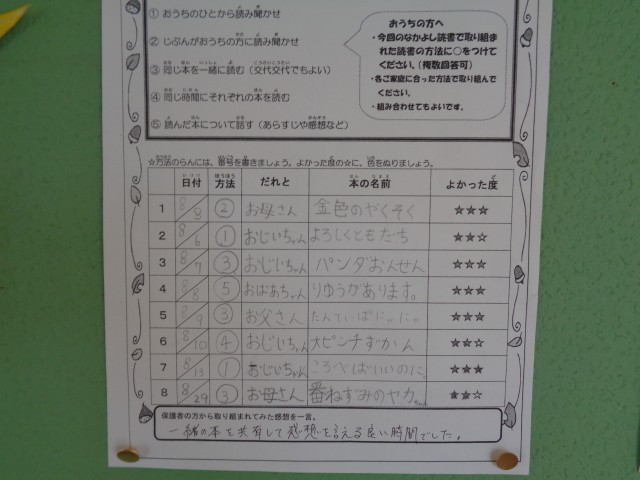 ① おうちのひとから読み聞かせ
② じぶんがおうちの方に読み聞かせ
③ 同じ本を一緒に読む（交代交代でもよい）
④ 同じ時間にそれぞれの本を読む
⑤ 読んだ本について話す（あらすじや感想など）
おうちの方へ
・今回のなかよし読書で取り組ま
れた読書の方法に○をつけて
ください。（複数回答可）
・各ご家庭に合った方法で取り組んで
ください。
・組み合わせてもよいです。
☆方法のらんには、番号を書きましょう。よかった度の☆に、色をぬりましょう。
日付 方法 だれと 本の名前 よかった度
1 8/ ② お母さん 金色のやくそく ★★★
2 8/6 ① おじいちゃん よろしくともだち ★★☆
3 8/7 ③ おじいちゃん パンダおんせん ★★★
4 8/8 ⑤ おばあちゃん りゆうがあります。 ★★★
5 8/9 ③ お父さん ★★★
6 8/10 ④ おじいちゃん 大ピンチずかん ★★☆
7 8/13 ① おじいちゃん ころべばいいのに。 ★★★
8 8/29 ③ お母さん 番ねずみのヤカちゃん ★★☆
保護者の方から取り組まれてみた感想を一言。
一緒の本を共有して感想を言える良い時間でした。